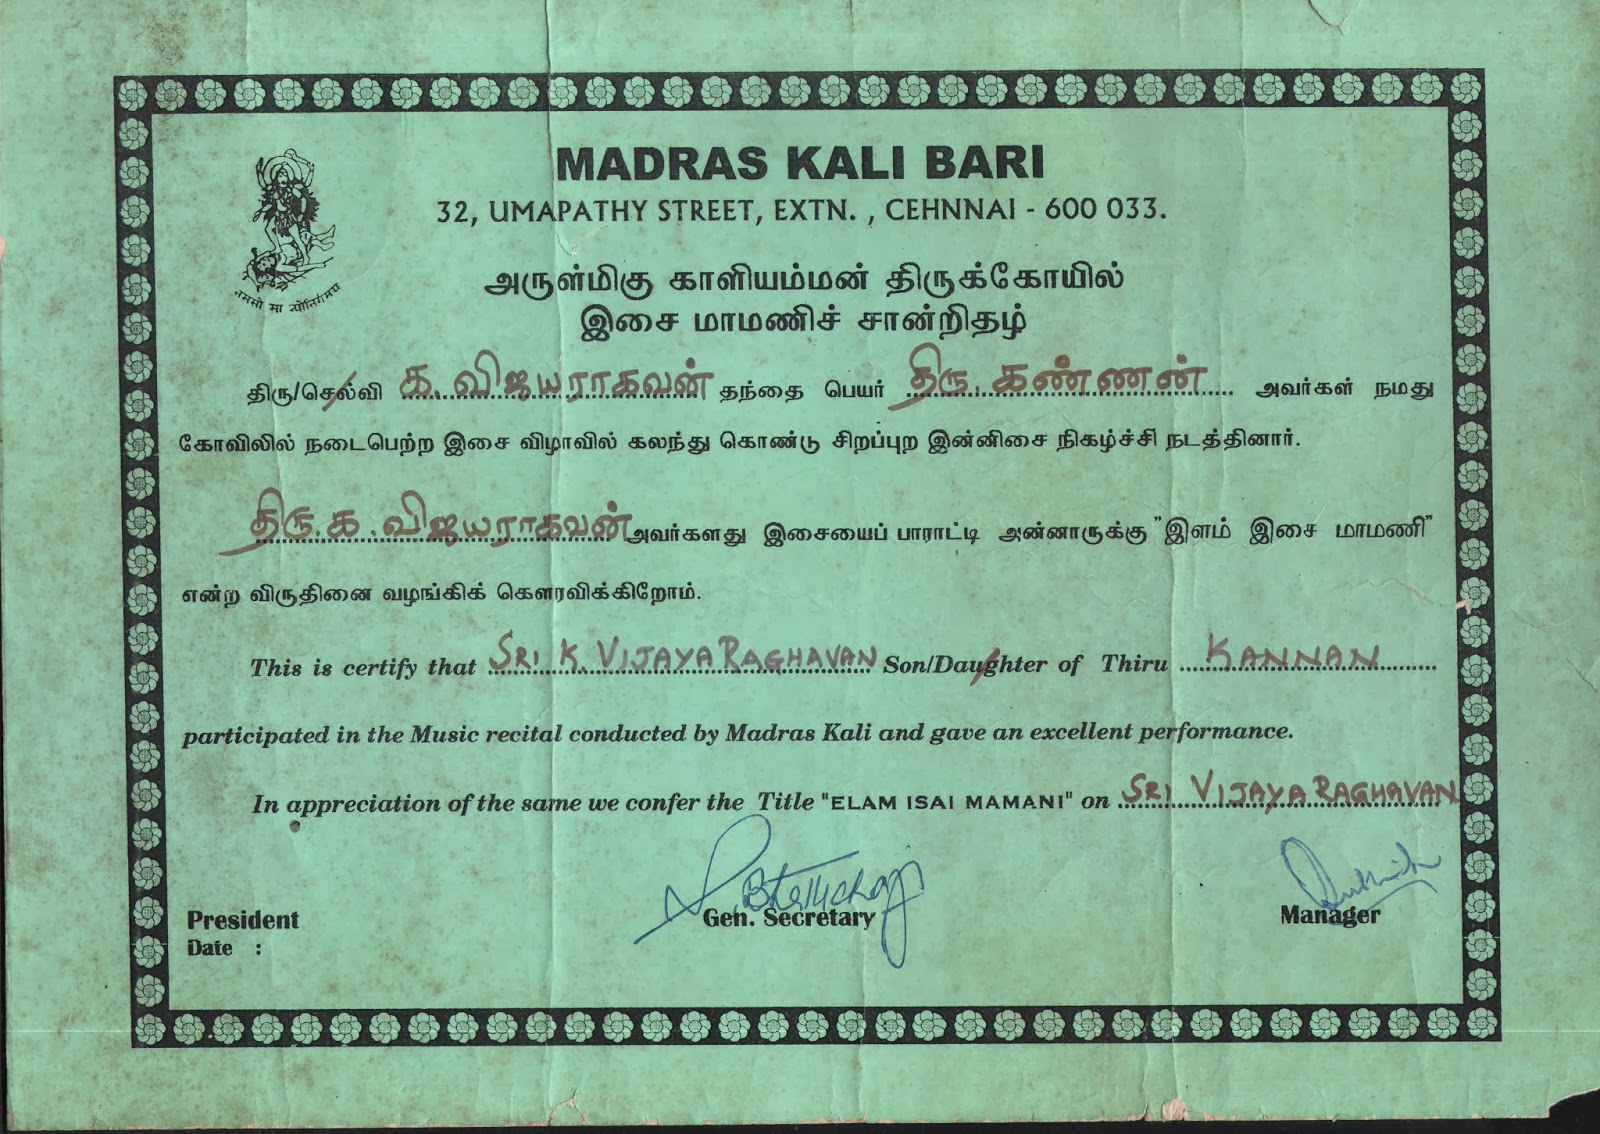 MADRAS KALI BARI
32, UMAPATHY STREET, EXTN. , CEHNNAI - 600 033.
தமसो मा ज्योतिर्गमय
அருள்மிகு காளியம்மன் திருக்கோயில்
இசை மாமணிச் சான்றிதழ்
திரு/செல்வி க. விஜயராகவன் தந்தை பெயர் திரு. கண்ணன் அவர்கள் நமது
கோவிலில் நடைபெற்ற இசை விழாவில் கலந்து கொண்டு சிறப்புற இன்னிசை நிகழ்ச்சி நடத்தினார்.
திரு. க. விஜயராகவன் அவர்களது இசையைப் பாராட்டி அன்னாருக்கு "இளம் இசை மாமணி"
என்ற விருதினை வழங்கிக் கௌரவிக்கிறோம்.
This is certify that SRI K. VIJAYARAGHAVAN Son/Daughter of Thiru KANNAN
participated in the Music recital conducted by Madras Kali and gave an excellent performance.
In appreciation of the same we confer the Title "ELAM ISAI MAMANI" on SRI VIJAYARAGHAVAN
President
Gen. Secretary
Manager
Date :